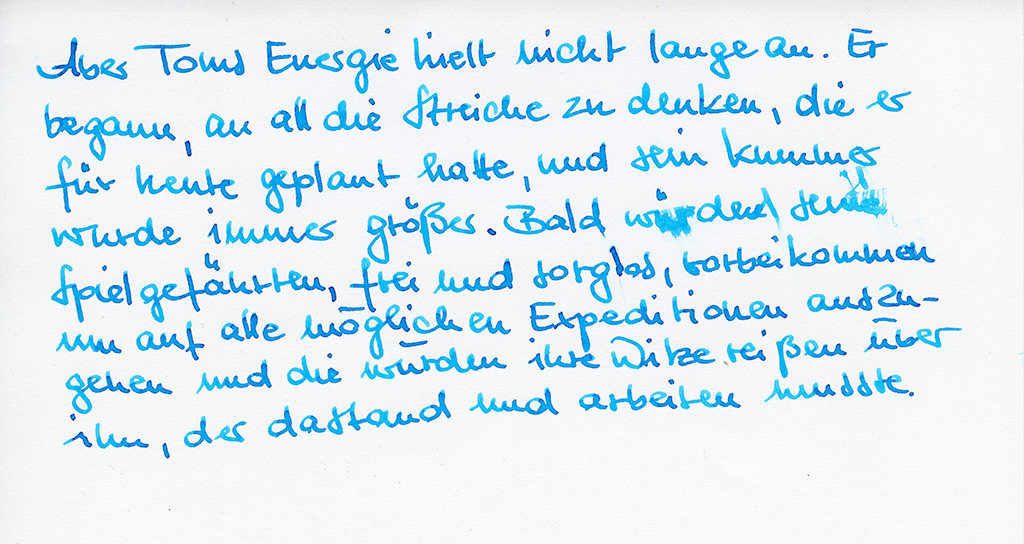 Aber Toms Energie hielt nicht lange an. Er
begann, an all die Streiche zu denken, die er
für heute geplant hatte, und sein Kummer
wurde immer größer. Bald würden seine
Spielgefährten, frei und sorglos, vorbeikommen
um auf alle möglichen Expeditionen auszu-
gehen und die würden ihre Witze reißen über
ihn, der dastand und arbeiten musste.